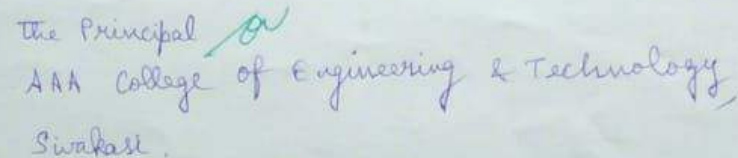 The Principal
AAA College of Engineering & Technology,
Sivakasi.